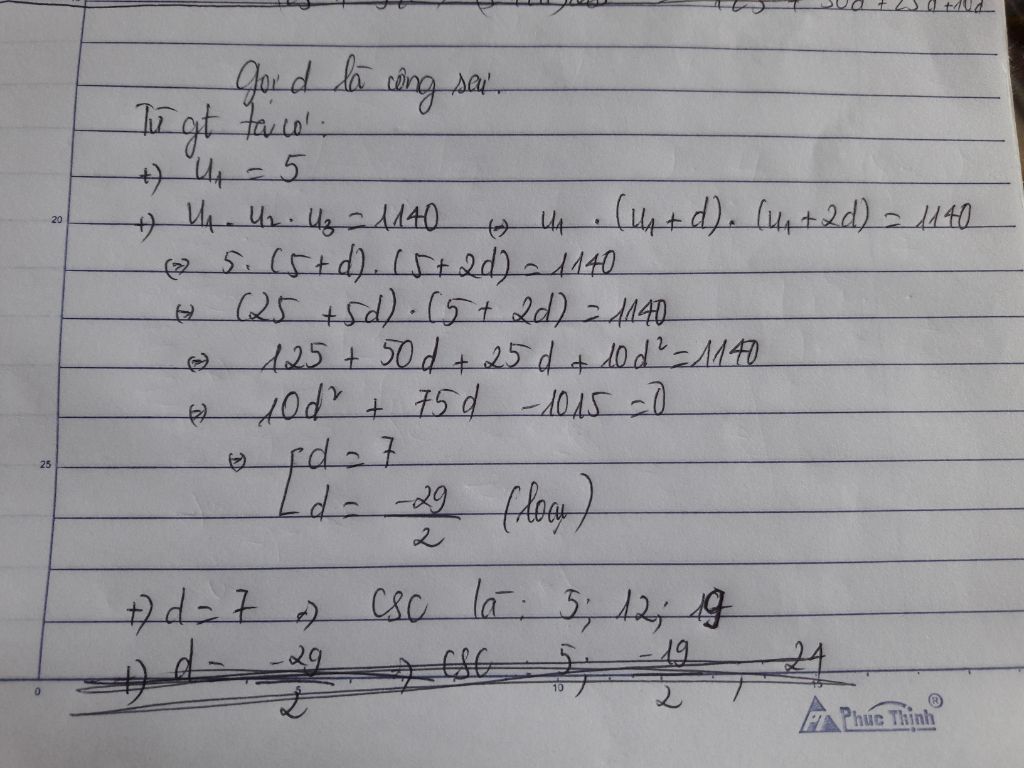 125 + 50d + 25d + 10d
Gọi d là công sai.
Từ gt ta có:
+) u₁ = 5
20
+) u₁ . u₂ . u₃ = 1140 (=) u₁ . (u₁ + d) . (u₁ + 2d) = 1140
(=) 5. (5 + d) . (5 + 2d) = 1140
(=) (25 + 5d) . (5 + 2d) = 1140
(=) 125 + 50d + 25d + 10d² = 1140
(=) 10d² + 75d - 1015 = 0
25
(=) [ d = 7
d = -29/2 (loại)
+) d = 7 => CSC là: 5; 12; 19
+) d = -29/2 => CSC 5; -19/2, 24
0 5 10 15
Phuc Thinh ®